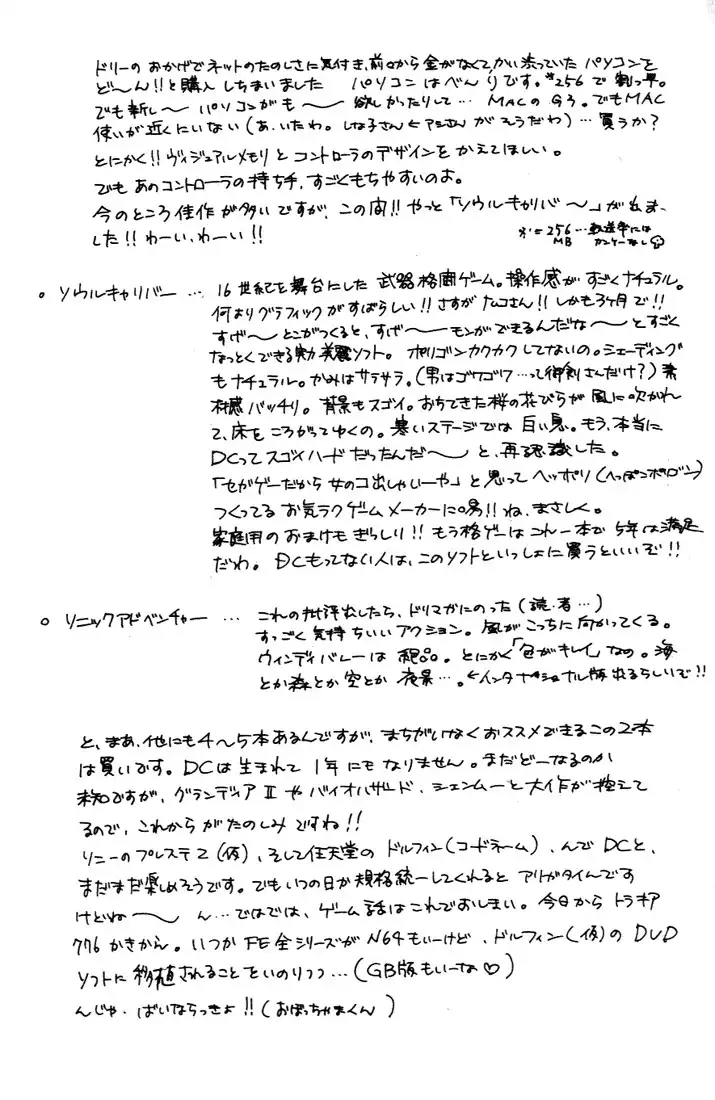 ドリーのおかげでネットのたのしさに気付き、前から金がなくてかい渋っていたパソコンを
ど〜ん!!と購入しちまいました　パソコンはべんりです。*256で割っ早。
でも新し〜パソコンがも〜〜欲しかったりして… MACのG3。でもMAC
使いが近くにいない(あ、いたわ。しな子さん←アシさんがそうだわ)…買うか?
とにかく!!ヴィジュアルメモリとコントローラのデザインをかえてほしい。
でもあのコントローラの持ち手、すごくもちやすいのよ。
今のところ佳作が多いですが、この間!!やっと「ソウルキャリバ〜」が出ま
した!!わーい、わーい!!
*=256…転送率には
MB カンケーなし
○ ソウルキャリバー … 16世紀を舞台にした武器格闘ゲーム。操作感がすごくナチュラル。
何よりグラフィックがすばらしい!!さすがナムコさん!!しかも3ヶ月で!!
すげ〜とこがつくると、すげ〜〜モンができるんだな〜〜とすごく
なっとくできる美麗ソフト。ポリゴンカクカクしてないの。シェーディング
もナチュラル。かみはサラサラ。(男はゴワゴワ…って御剣さんだけ?)素
材感バッチリ。背景もスゴイ。おちてきた桜の花びらが風に吹かれ
て、床をころがってゆくの。寒いステージでは白い息。もう、本当に
DCってスゴイハードだったんだ〜と、再認識した。
「セガゲーだから女のコ出しゃいーや」と思ってヘッポリ(へっぽこポリゴン)
つくってるお気ラクゲームメーカーに喝!!ね、まさしく。
家庭用のおまけもぎっしり!!もう格ゲーはこれ一本で5年は満足
だわ。DCもってない人は、このソフトといっしょに買うといいで!!
○ ソニックアドベンチャー … これの批評出したら、ドリマガにのった(読・者…)
すっごく気持ちいいアクション。風がこっちに向かってくる。
ウィンディバレーは絶品。とにかく「色がキレイ」なの。海
とか森とか空とか夜景…。←インタナショナル版出るらしいで!!
と、まあ、他にも4〜5本あるんですが、まちがいなくおススメできるこの2本
は買いです。DCは生まれて1年にもなりません。まだどーなるのか
未知ですが、グランディアⅡやバイオハザード、シェンムーと大作が控えて
るので、これからがたのしみですね!!
ソニーのプレステ2(仮)、そして任天堂のドルフィン(コードネーム)、んでDCと、
まだまだ楽しめそうです。でもいつの日か規格統一してくれるとアリガタイんです
けどね〜〜 ん…ではでは、ゲーム話はこれでおしまい。今日からトラキア
776かきから。いつかFE全シリーズがN64もいーけど、ドルフィン(仮)のDVD
ソフトに移植されることをいのりつつ…(GB版もいーな♡)
んじゃ、ばいならっきょ!!(おぼっちゃまくん)